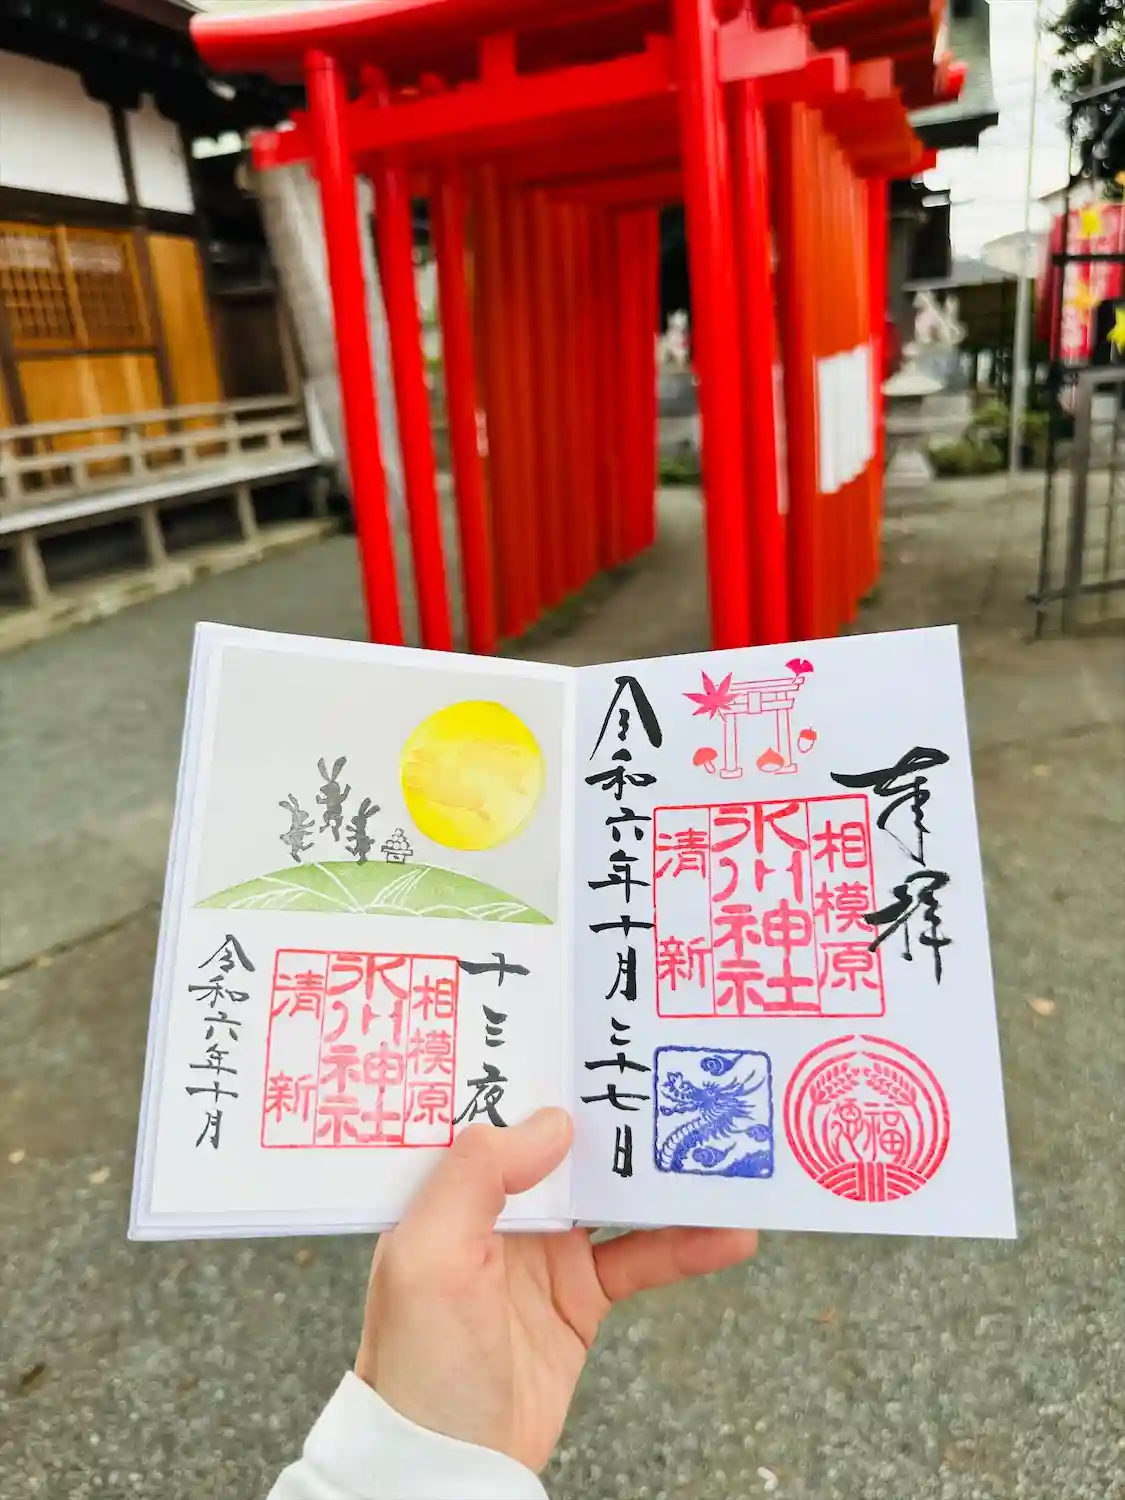 奉拝
相模原
氷川神社
清新
令和六年十月二十七日
福徳
十三夜
相模原
氷川神社
清新
令和六年十月